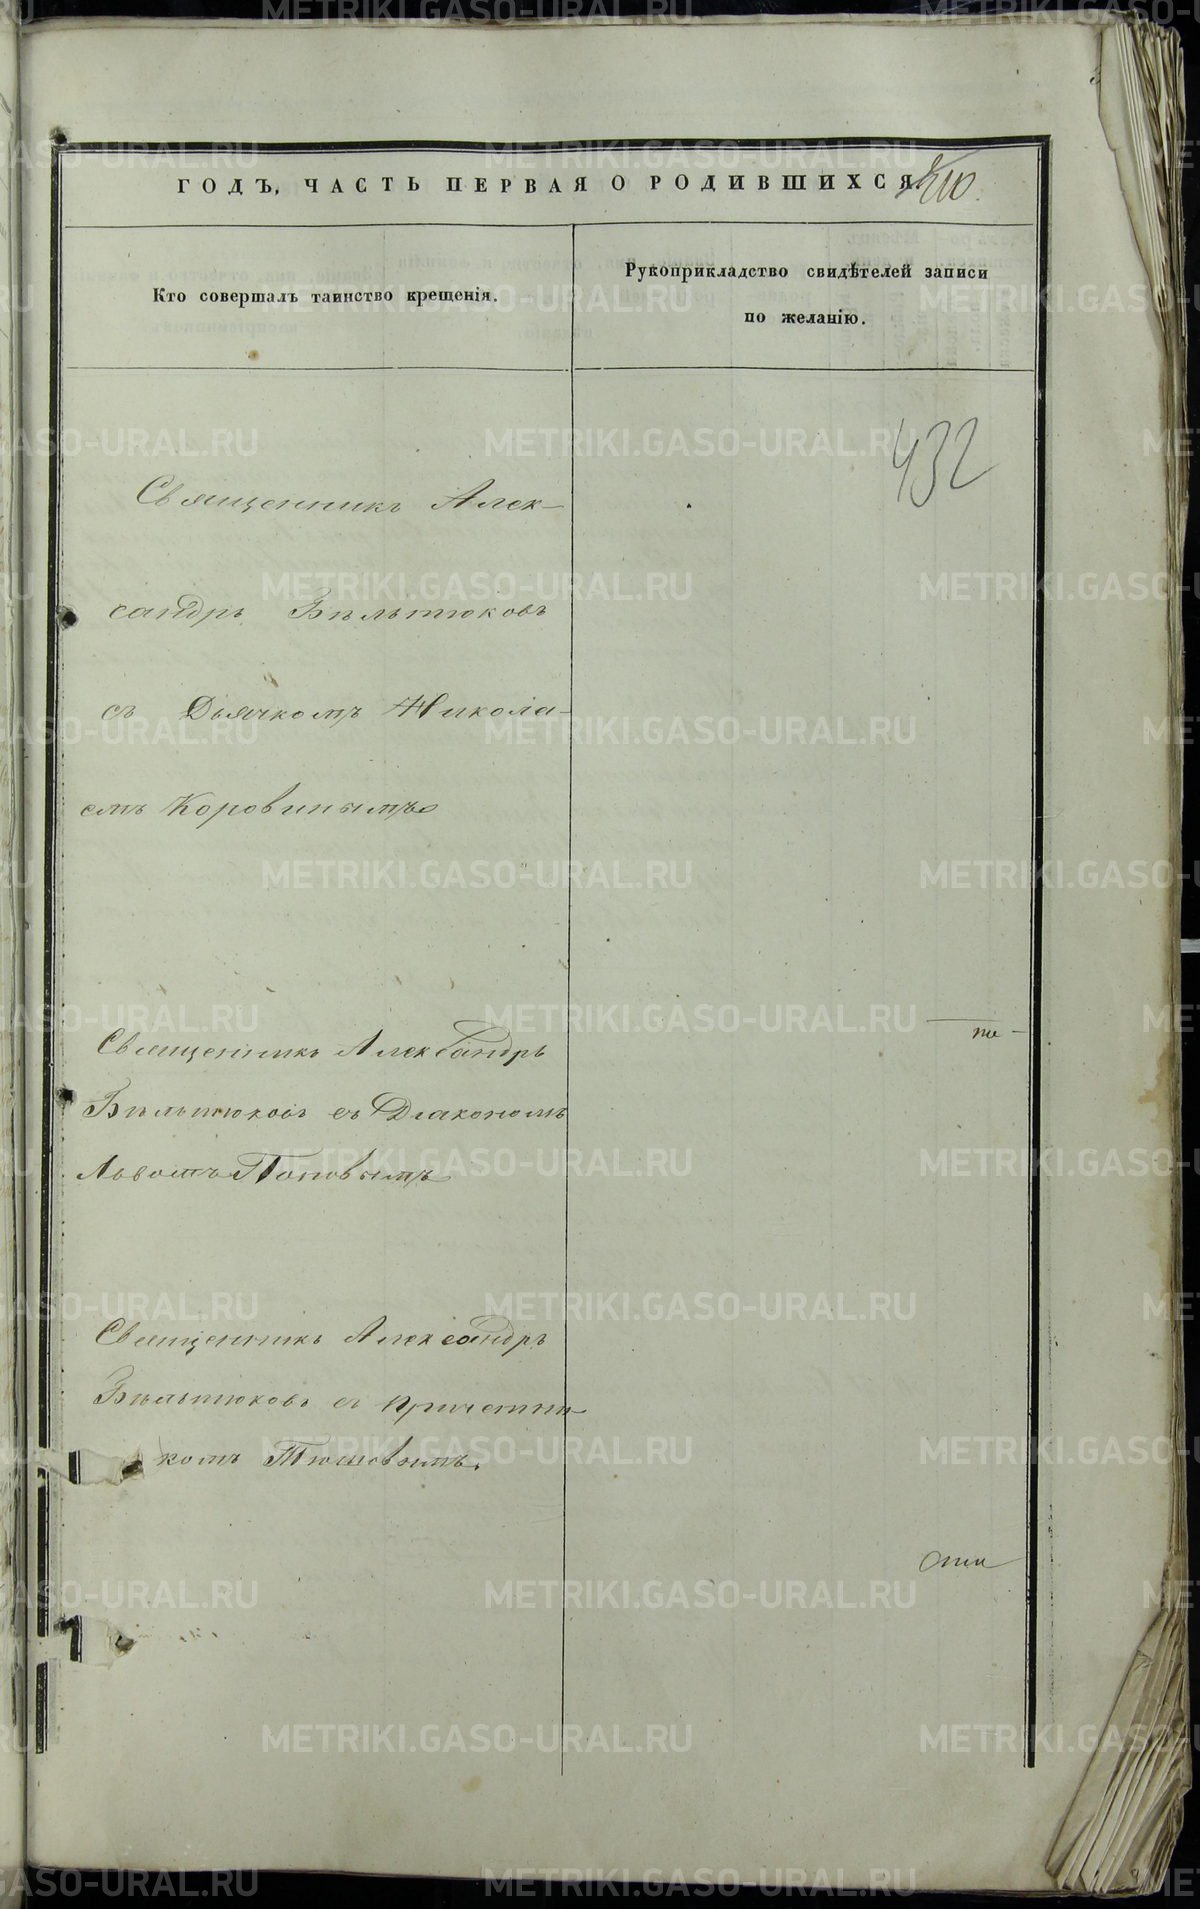 ГОДЪ, ЧАСТЬ ПЕРВАЯ О РОДИВШИХСЯ.
Кто совершалъ таинство крещенія.
Рукоприкладство свидѣтелей записи
по желанію.
432
Священникъ Алек-
сандръ Бѣльтюковъ
съ Дьячкомъ Никола-
емъ Коровинымъ
Священникъ Александръ
Бѣльтюковъ съ Діакономъ
Львомъ Поповымъ
Священникъ Александръ
Бѣльтюковъ съ причетни-
комъ
METRIKI.GASO-URAL.RU